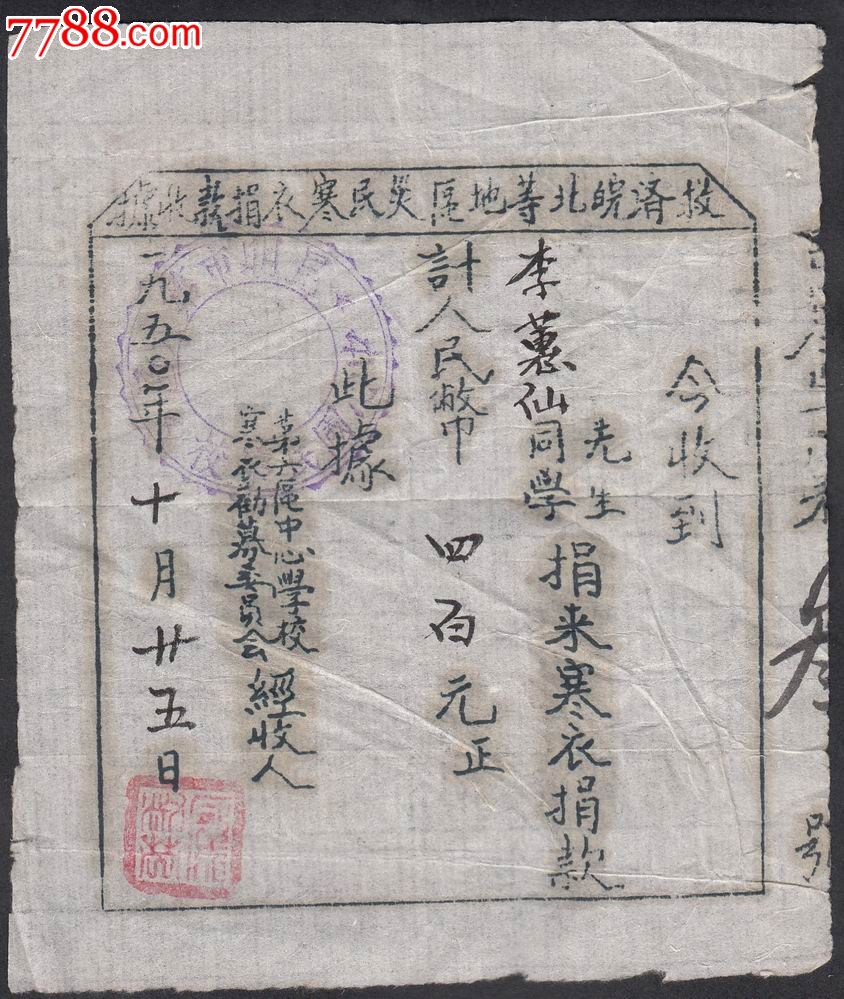 7788.com
救濟皖北等地區災民寒衣捐款收據
今收到
李蕙仙
先生
同學
捐来寒衣捐款
計人民幣 四百元正
此據
第六區中心學校
寒衣勸募委員会
經收人
一九五〇年十月廿五日
叁
號